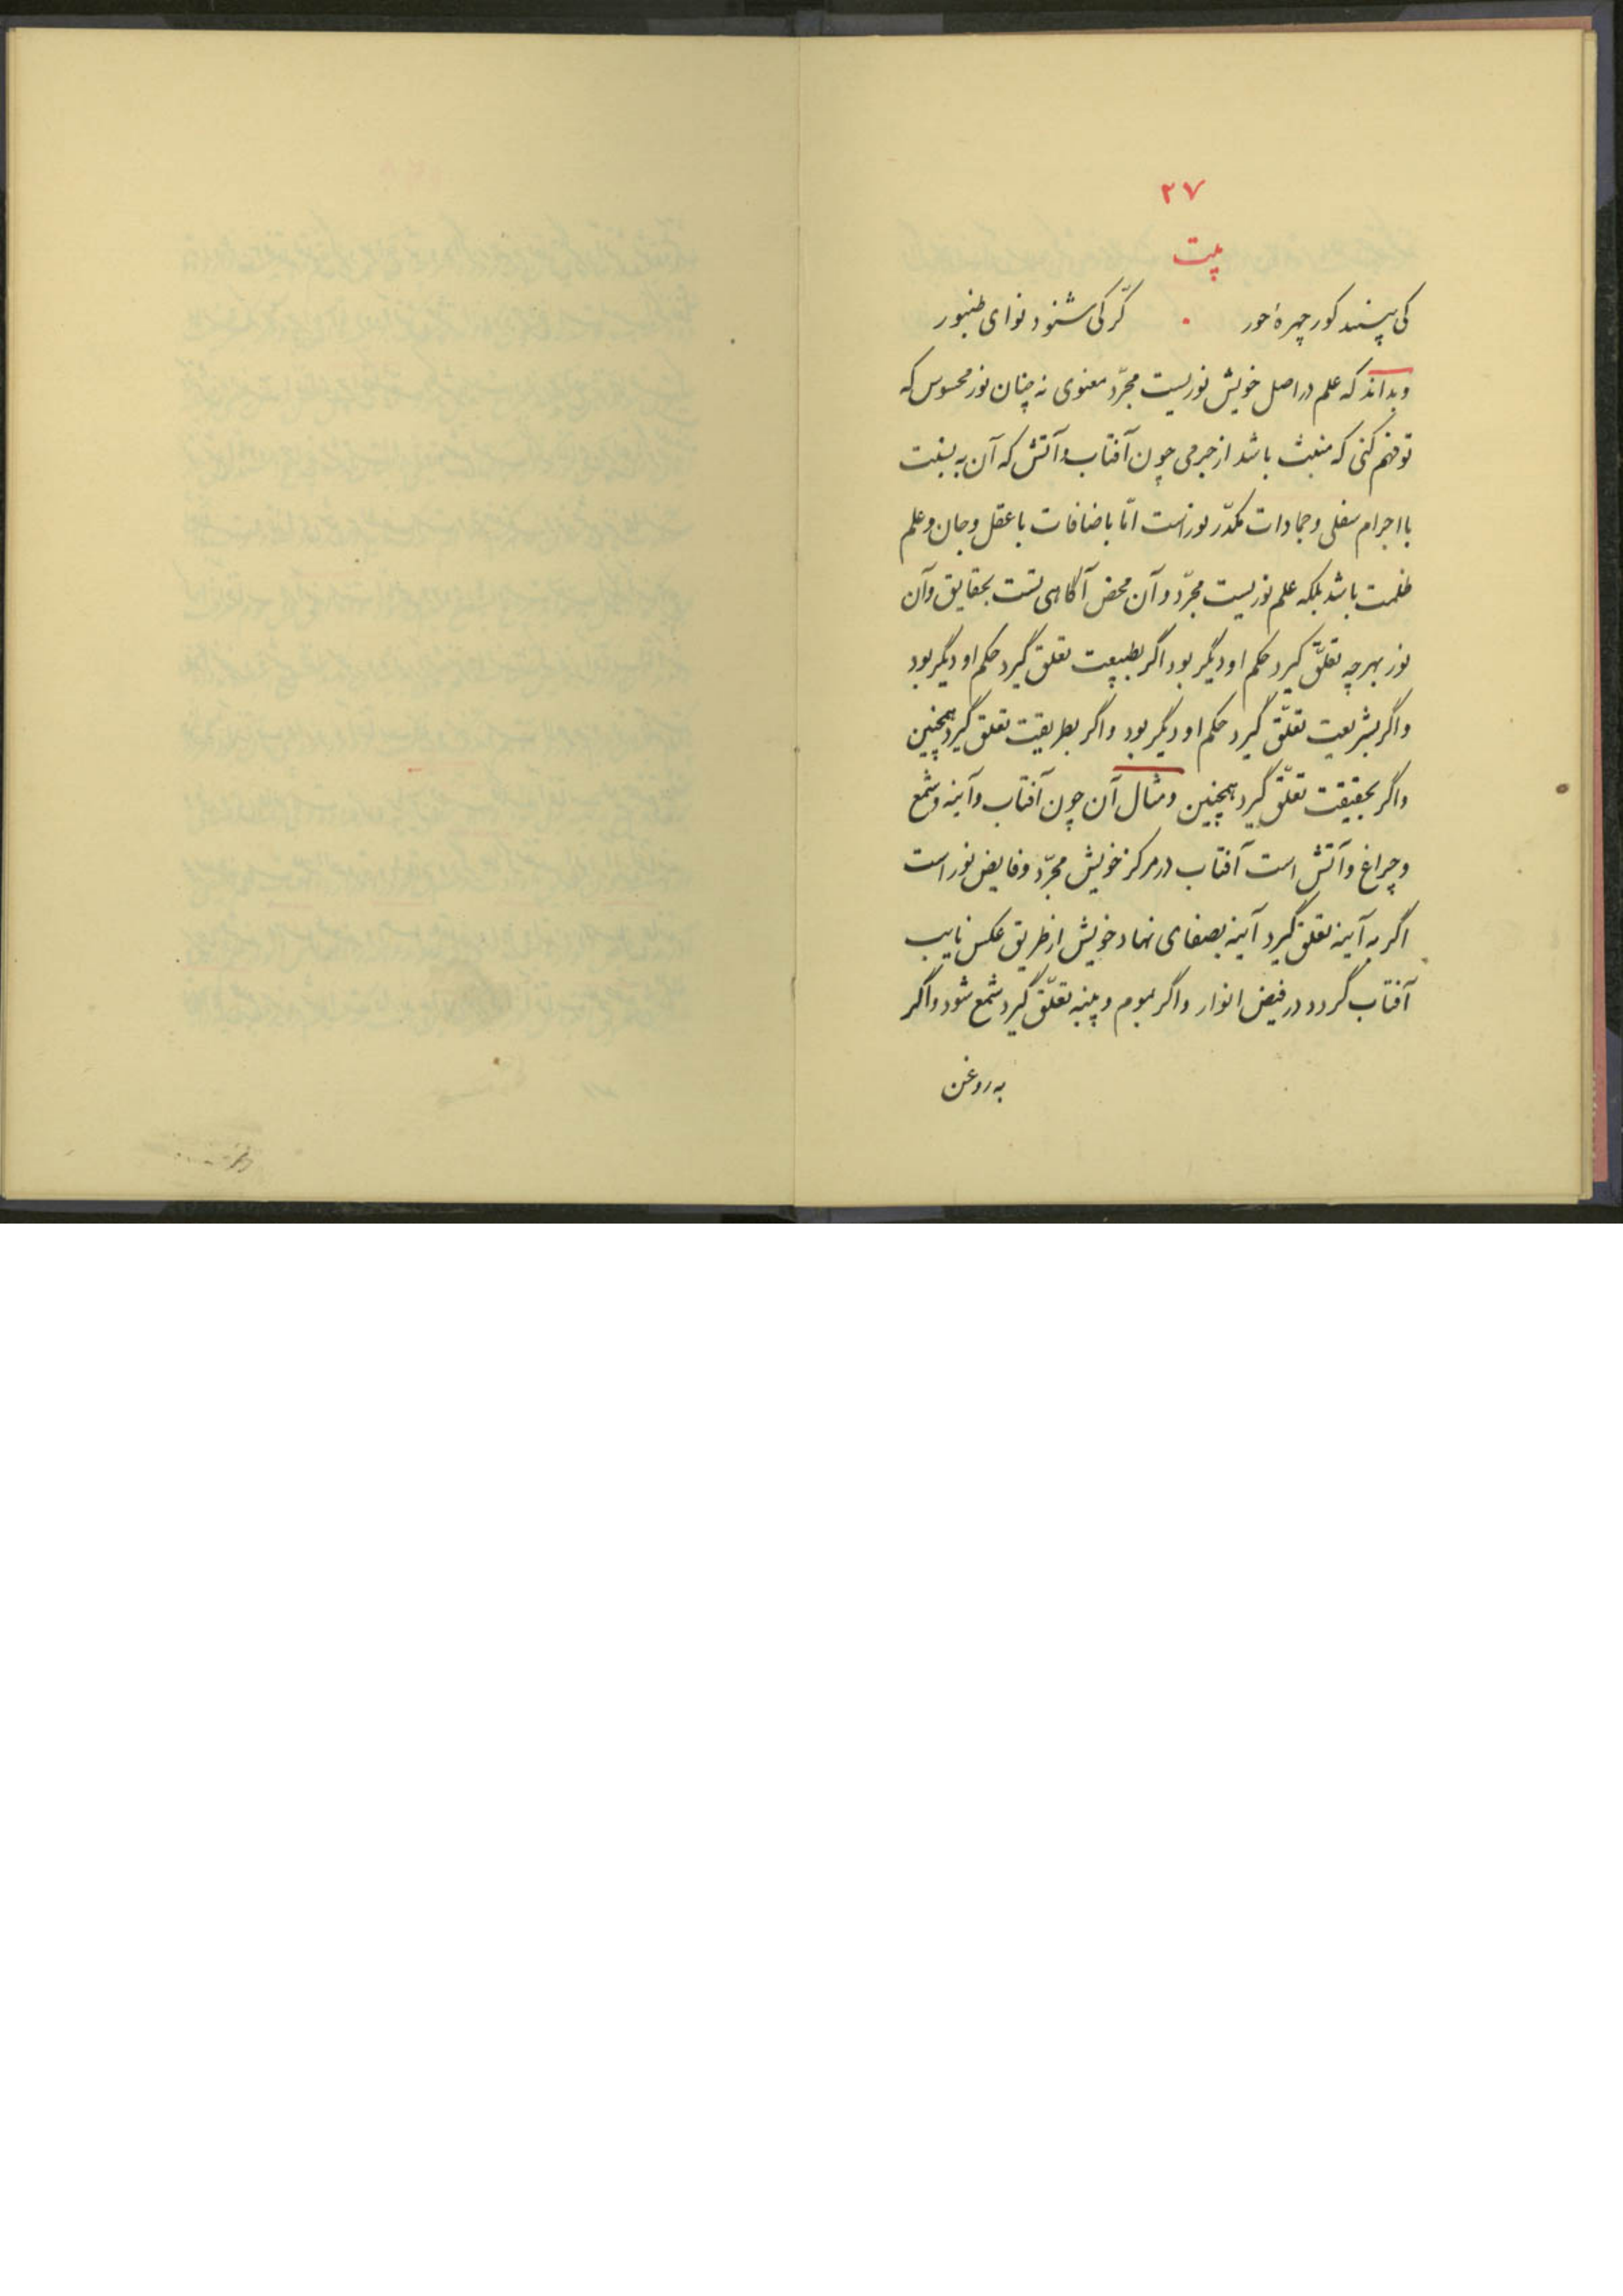 ۲۷
بیت
کی بیند کور چهرهٔ حور . کر کی شنود نوای طنبور
وبداند که علم در اصل خویش نوریست مجرّد معنوی نه چنان نور محسوس که
تو فهم کنی که منبعث باشد از جرمی چون آفتاب و آتش که آن به نسبت
با اجرام سفلی و جمادات مکدّر نور است امّا باضافات با عقل و جان و علم
ظلمت باشد بلکه علم نوریست مجرّد و آن محض آگاهی تست بحقایق و آن
نور بهر چه تعلّق گیرد حکم او دیگر بود اگر بطبیعت تعلق گیرد حکم او دیگر بود
واگر بشریعت تعلّق گیرد حکم او دیگر بود واگر بطریقت تعلق گیرد همچنین
واگر بحقیقت تعلّق گیرد همچنین ومثال آن چون آفتاب وآینه وشمع
وچراغ وآتش است آفتاب در مرکز خویش مجرّد وفایض نور است
اگر به آینه تعلق گیرد آینه بصفای نهاد خویش از طریق عکس نایب
آفتاب گردد در فیض انوار واگر بموم وپنبه تعلّق گیرد شمع شود واگر
به روغن